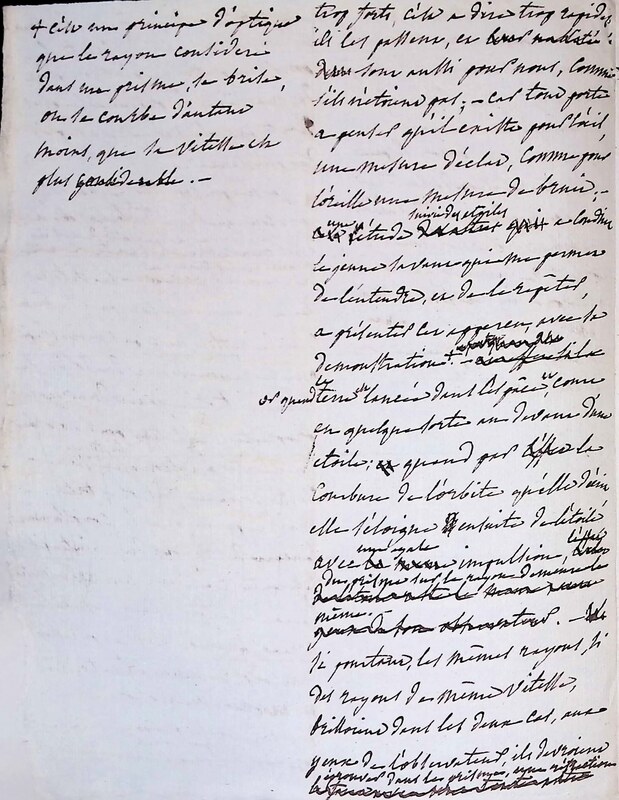 + c'est un principe d'optique
que le rayon considéré
dans un prisme, se brise,
ou se courbe d'autant
moins, que sa vitesse est
plus considerable. -
trop forts, c'est a dire trop rapides
ils les passent, et
sont aussi pour nous, comme
s'ils n'etoient pas; - car tout porte
a penser qu'il existe pour l'œil
une mesure d'éclat, comme pour
l'oreille une mesure de bruit, -
suivie des etoiles
une étude a conduit
le jeune savant qui me permet
de l'entendre, et de le répéter,
a présenter cet apperçu, avec sa
demonstration. +
or quand la terre lancée dans l'espace, court
en quelque sorte au devant d'une
etoile; quand par la
courbure de l'orbite qu'elle décrit
elle s'éloigne ensuite de l'étoile
avec une égale impulsion, l'effet
du prisme sur le rayon demeure le
même. -
si pourtant, les mêmes rayons, si
des rayons de même vitesse,
brilloient dans les deux cas, aux
yeux de l'observateur, ils devroient
éprouver dans les prismes, une réfraction